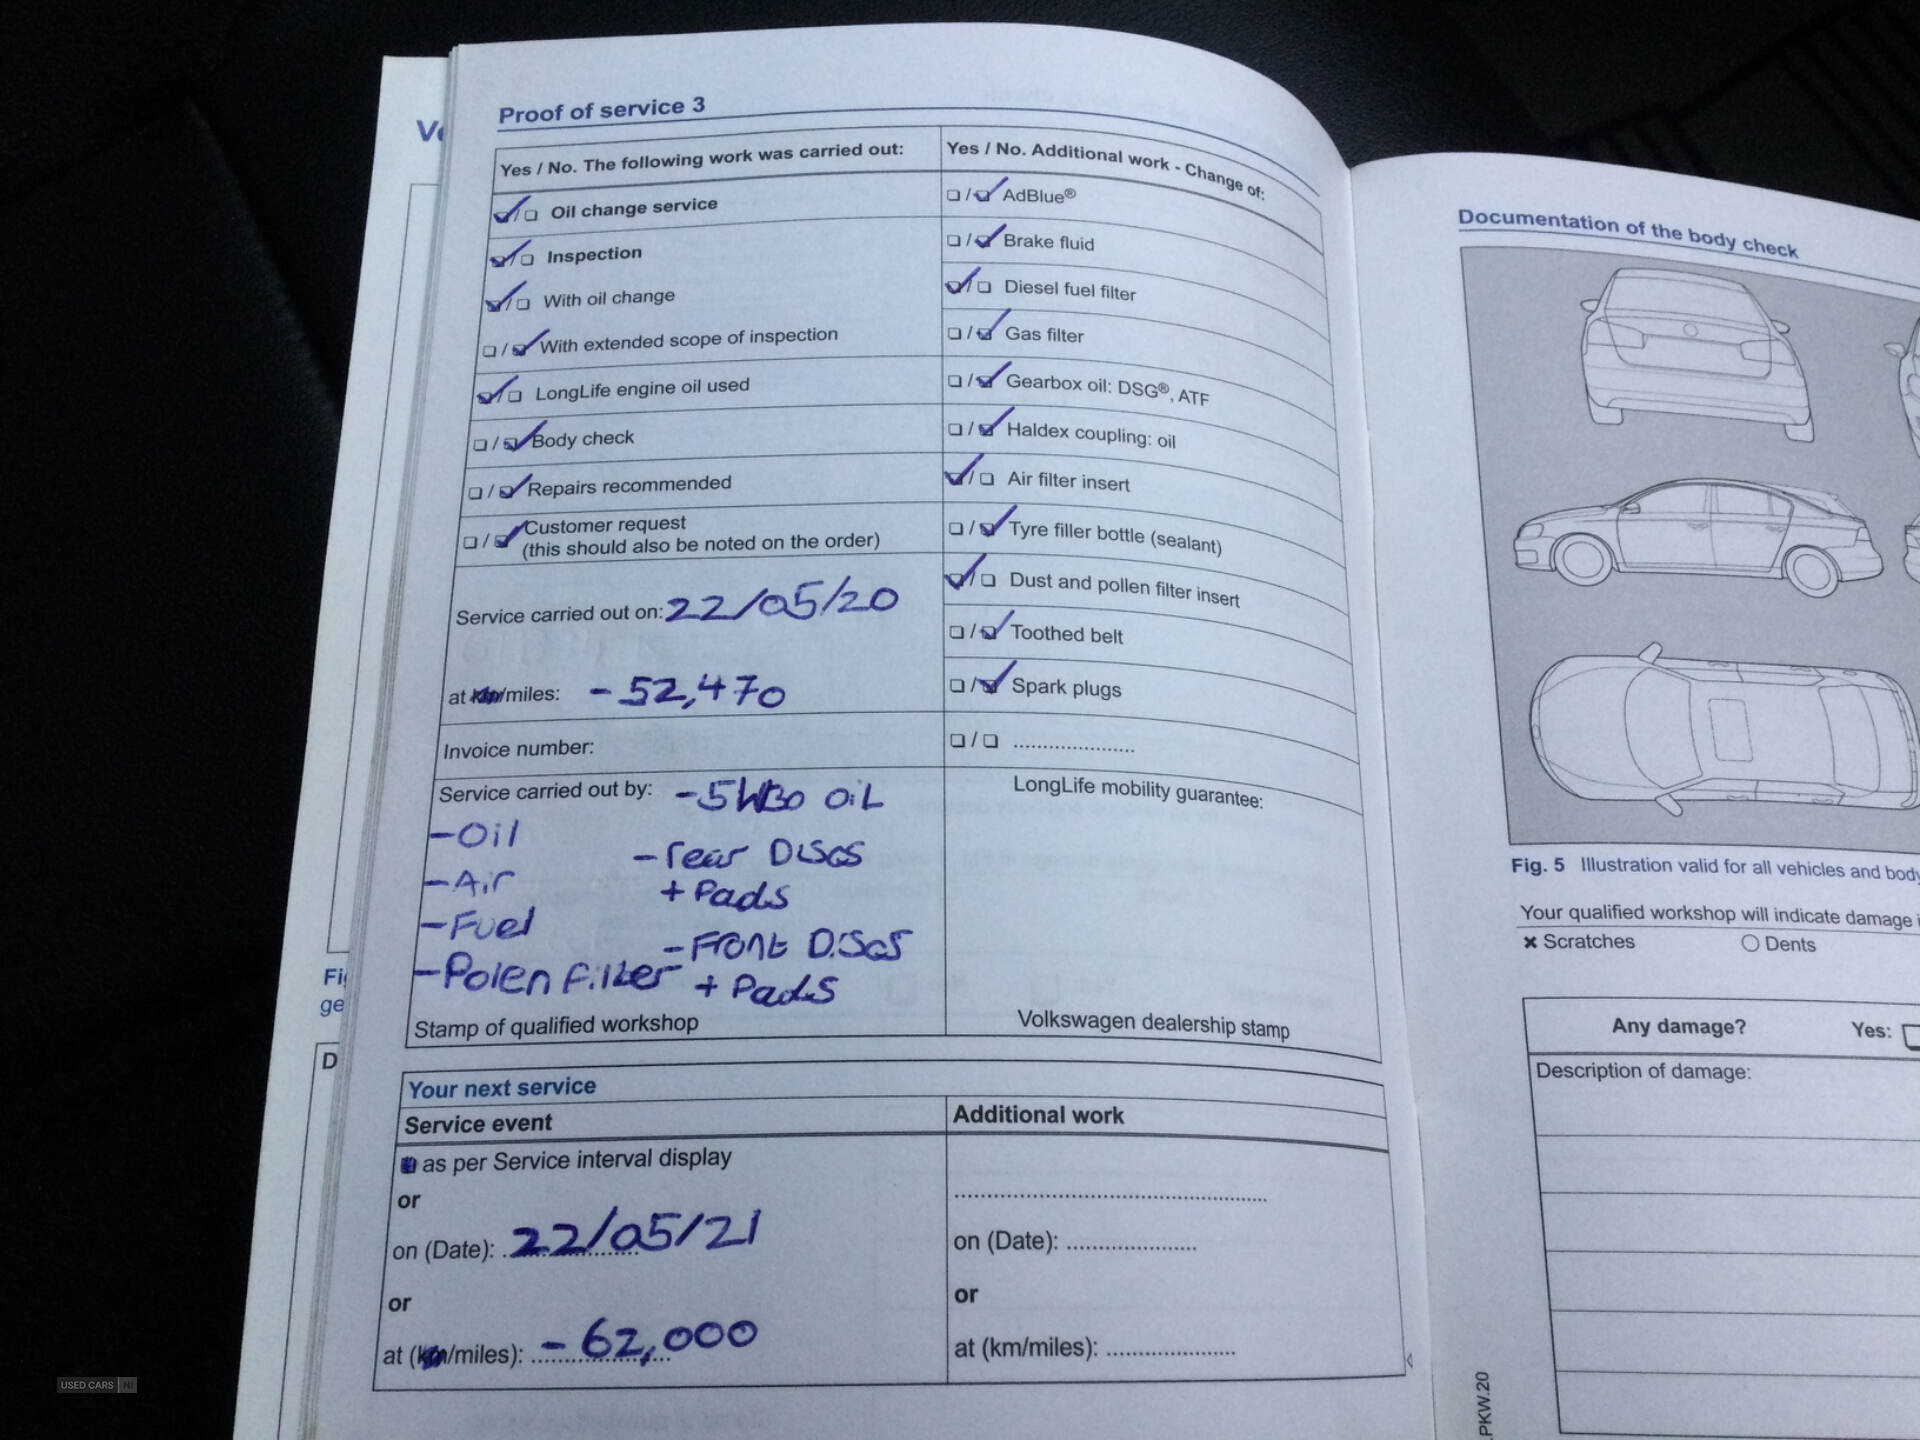 Proof of service 3
Yes / No. The following work was carried out:
☑/☐ Oil change service
☑/☐ Inspection
☑/☐ With oil change
☐/☑ With extended scope of inspection
☑/☐ LongLife engine oil used
☐/☑ Body check
☐/☑ Repairs recommended
☐/☑ Customer request
(this should also be noted on the order)
Service carried out on: 22/05/20
at km/miles: - 52,470
Invoice number:
Service carried out by:
- Oil
- Air
- Fuel
- Polen Filter
- 5W30 OiL
- rear DiScS
+ Pads
- Front DiScS
+ Pads
Stamp of qualified workshop
Yes / No. Additional work - Change of:
☐/☑ AdBlue®
☐/☑ Brake fluid
☑/☐ Diesel fuel filter
☐/☑ Gas filter
☐/☑ Gearbox oil: DSG®, ATF
☐/☑ Haldex coupling: oil
☑/☐ Air filter insert
☐/☑ Tyre filler bottle (sealant)
☑/☐ Dust and pollen filter insert
☐/☑ Toothed belt
☐/☑ Spark plugs
☐/☐ .....................
LongLife mobility guarantee:
Volkswagen dealership stamp
Your next service
Service event
as per Service interval display
or
on (Date): 22/05/21
or
at (km/miles): - 62,000
Additional work
on (Date): .....................
or
at (km/miles): .....................
Documentation of the body check
Fig. 5 Illustration valid for all vehicles and body
Your qualified workshop will indicate damage
× Scratches
○ Dents
Any damage? Yes: ☐
Description of damage:
.PKW.20
Fi
ge
D
USED CARS NI